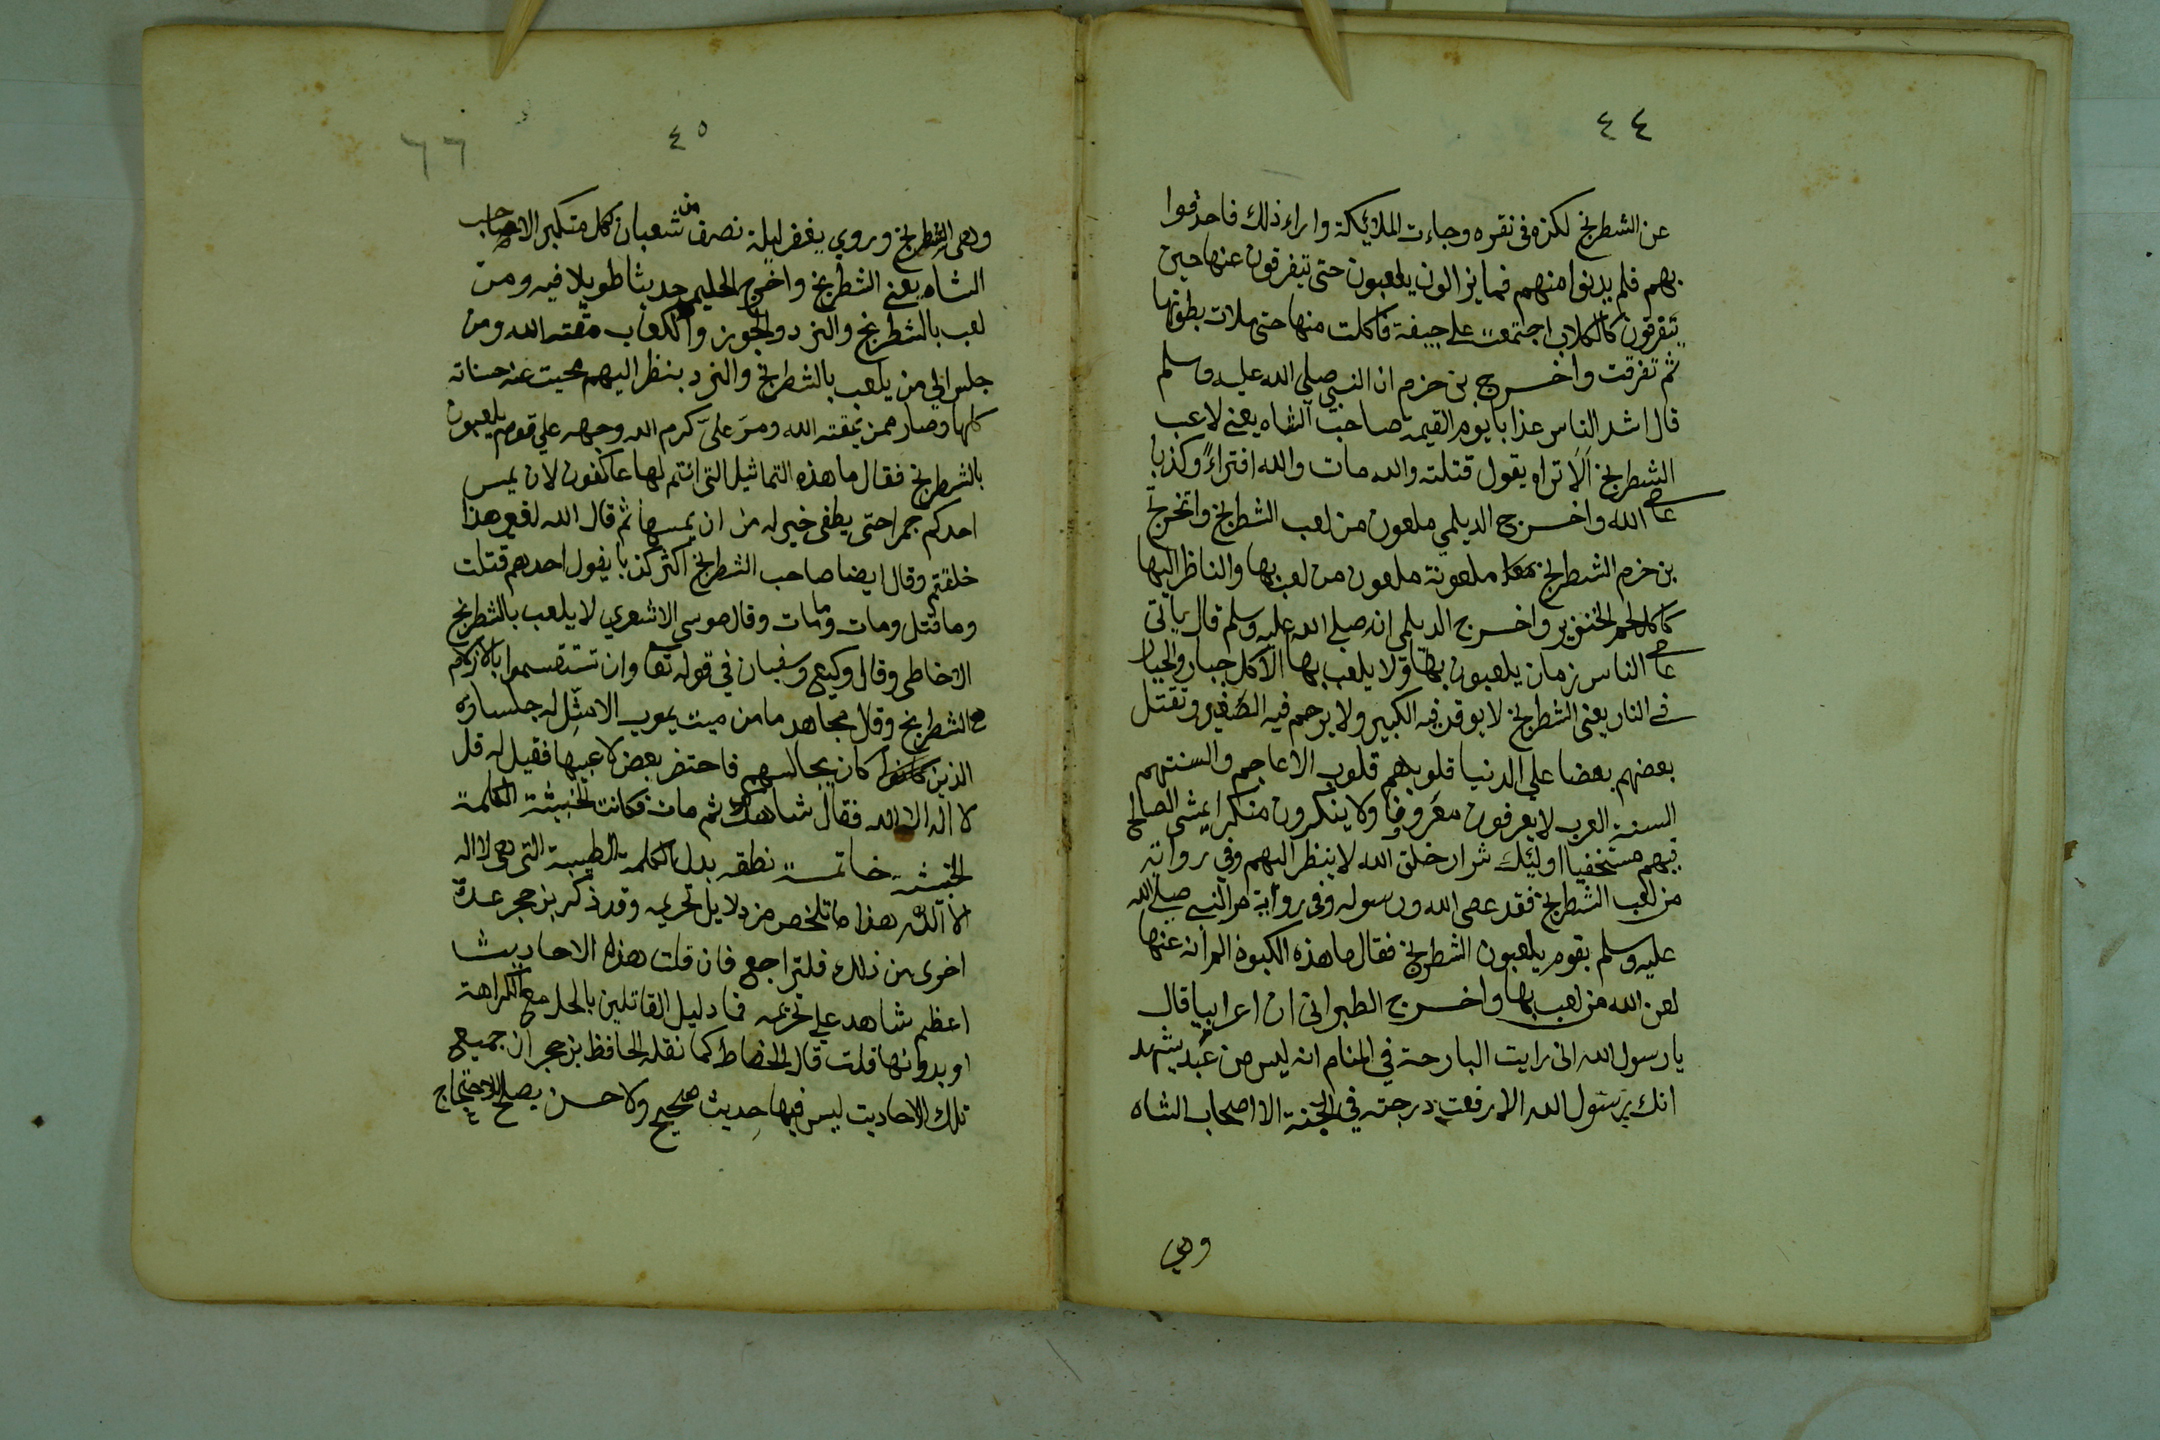 ٤٤
عن الشطرنج لكزه فى نقره وجاءت الملائكة واراء ذلك فاحدقوا
بهم فلم يدنوا منهم فما يزالون يلعبون حتى تتفرقون عنها حين
يتفرقون كالكلاب اجتمعت على جيفة فاكلت منها حتى ملات بطونها
ثم تفرقت واخرج بن حزم ان النبي صلى الله عليه وسلم
قال اشد الناس عذابا يوم القيمة صاحب الشاه يعنى لاعب
الشطرنج الا تراه يقول قتلته والله مات والله افتراءً وكذبا
على الله واخرج الديلمي ملعون من لعب الشطرنج واتخرج
بن حزم الشطرنج ملعونة ملعون من لعب بها والناظر اليها
كاكل لحم الخنزير واخرج الديلمي انه صلى الله عليه وسلم قال ياتى
على الناس زمان يلعبون بها ولا يلعب بها الا كل جبار والجبار
فى النار يعنى الشطرنج لا يوقر فيه الكبير ولا يرحم فيه الصغير وتقتل
بعضهم بعضا على الدنيا قلوبهم قلوب الاعاجم والسنتهم
السنة العرب لا يعرفون معروفا ولا ينكرون منكرا يمشى الصالح
فيهم مستخفيا اوليك شرار خلق الله لا ينظر اليهم وفى رواية
من لعب الشطرنج فقد عصى الله ورسوله وفى رواية مر النبي صلى الله
عليه وسلم بقوم يلعبون الشطرنج فقال ما هذه الكوبة الم انه عنها
لعن الله من لعب بها واخرج الطبرانى ان اعرابيا قال
يا رسول الله انى رايت البارحة في المنام انه ليس من عبد يشهد
انك رسول الله الا رفعت درجته في الجنة الا اصحاب الشاه
وهي
٤٥
٦٦
وهى الشطرنج وروي يغفر ليلة نصف من شعبان كل متكبر الا صاحب
الشاه يعنى الشطرنج واخرج الحليمي حديثا طويلا فيه ومن
لعب بالشطرنج والنرد والجوز والكعاب مقته الله ومن
جلس الى من يلعب بالشطرنج والنرد ينظر اليهم محيت عنه حسناته
كلها وصار ممن يمقته الله ومر عليّ كرم الله وجهه على قوم يلعبون
بالشطرنج فقال ما هذه التماثيل التى انتم لها عاكفون لان يمس
احدكم جمرا حتى يطفى خير له من ان يمسها ثم قال الله لغير هذا
خلقتم وقال ايضا صاحب الشطرنج اكثر كذبا يقول احدهم قتلت
وما قتل ومات وما مات وقال موسى الاشعري لا يلعب بالشطرنج
الا خاطى وقال وكيع وسفيان في قوله تعا وان تستقسموا بالازلام
هى الشطرنج وقال مجاهد ما من ميت يموت الا مثل له جلساؤه
الذين كان يجالسهم فاحتضر بعض لاعبيها فقيل له قل
لا اله الا الله فقال شاهك ثم مات فكانت الخبيثة الكلمة
الخبيثة خاتمة نطقه بدل الكلمة الطيبة التى هى لا اله
الا الله هذا ما تلخص من دلايل تحريمه وقد ذكر بن حجر عدة
اخرى من ذلك فلتراجع فان قلت هذه الاحاديث
اعظم شاهد على تحريمه فما دليل القائلين بالحل مع الكراهة
او بدونها قلت قال الحفاظ كما نقله الحافظ بن حجر ان جميع
تلك الاحاديث ليس فيها حديث صحيح ولا حسن يصلح للاحتجاج